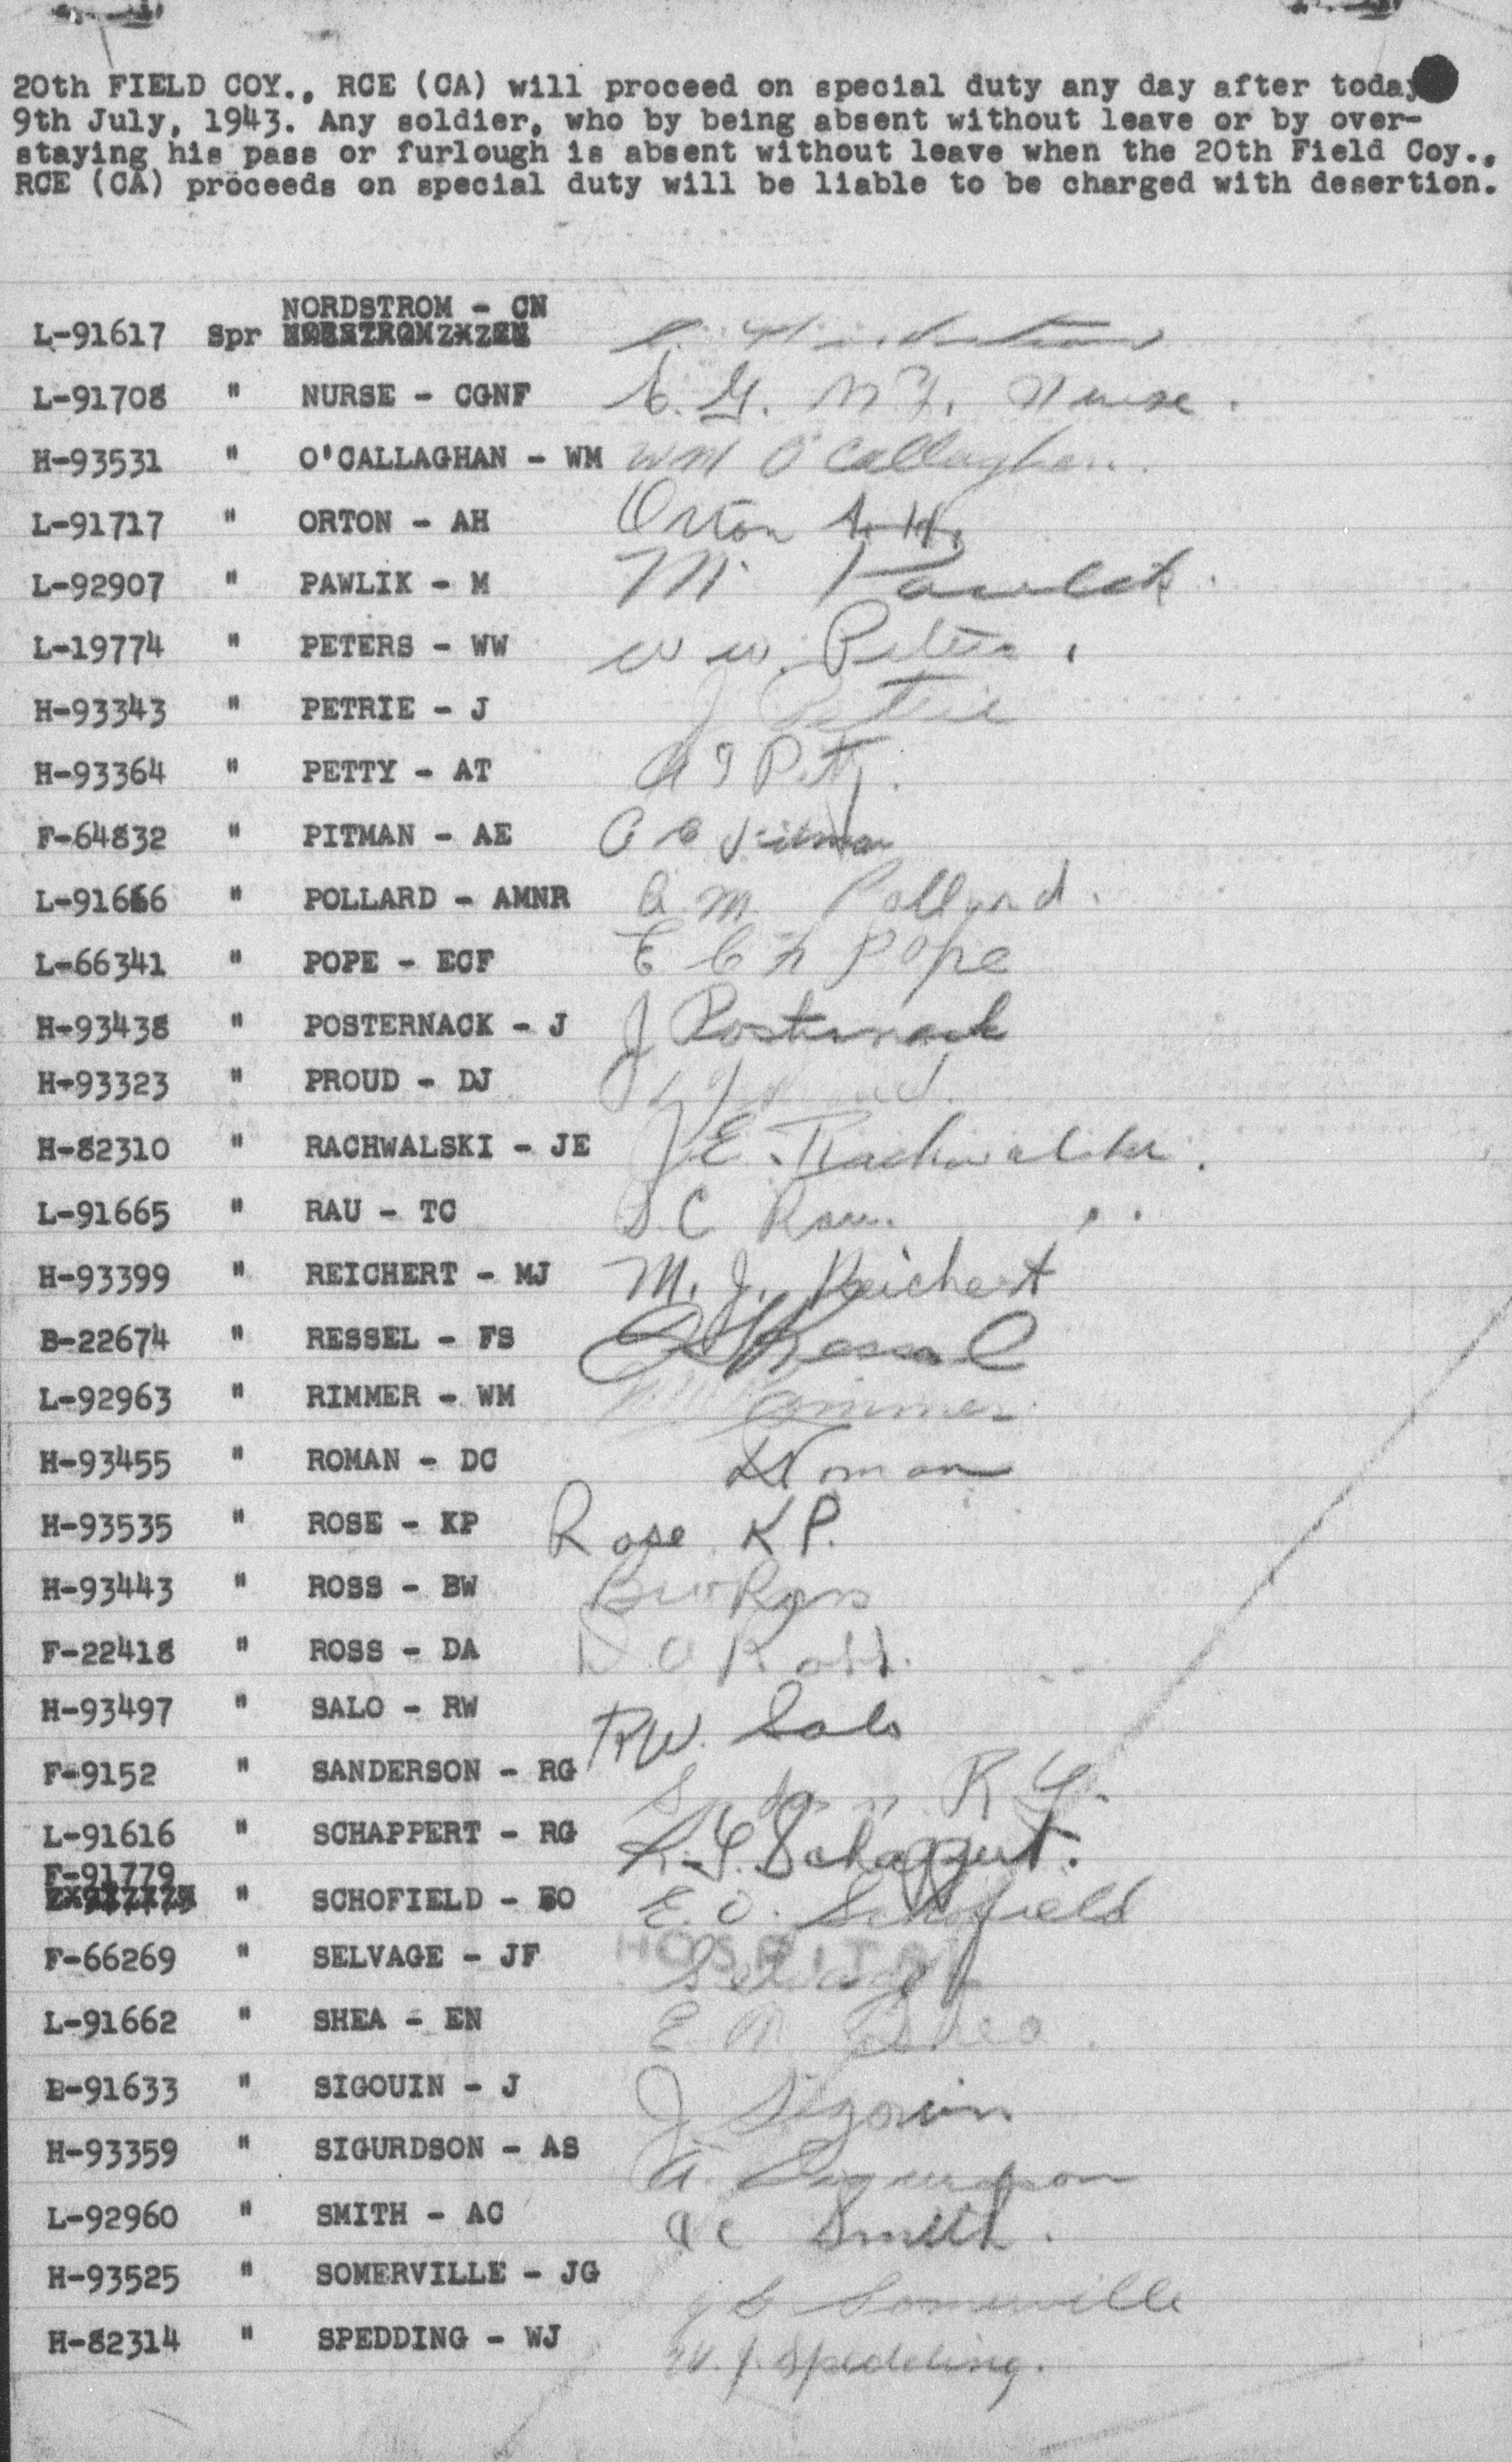 20th FIELD COY., RCE (CA) will proceed on special duty any day after today
9th July, 1943. Any soldier, who by being absent without leave or by over-
staying his pass or furlough is absent without leave when the 20th Field Coy.,
RCE (CA) proceeds on special duty will be liable to be charged with desertion.
NORDSTROM - CN
L-91617 Spr
L-91708 " NURSE - CGNF C. G. N F. Nurse.
H-93531 " O'CALLAGHAN - WM WM O'Callaghan.
L-91717 " ORTON - AH Orton A. H.
L-92907 " PAWLIK - M M. Pawlik.
L-19774 " PETERS - WW W W. Peters.
H-93343 " PETRIE - J J Petrie
H-93364 " PETTY - AT A T Petty.
F-64832 " PITMAN - AE A E Pitman
L-91666 " POLLARD - AMNR A M Pollard.
L-66341 " POPE - ECF E C F Pope
H-93438 " POSTERNACK - J J Posternack
H-93323 " PROUD - DJ
H-82310 " RACHWALSKI - JE J E. Rachwalski.
L-91665 " RAU - TC T. C Rau.
H-93399 " REICHERT - MJ M. J. Reichert
B-22674 " RESSEL - FS F S Ressel
L-92963 " RIMMER - WM WM Rimmer
H-93455 " ROMAN - DC Roman
H-93535 " ROSE - KP Rose KP.
H-93443 " ROSS - BW B W Ross
F-22418 " ROSS - DA D. A Ross.
H-93497 " SALO - RW RW. Salo
F-9152 " SANDERSON - RG R G.
L-91616 " SCHAPPERT - RG R. G. Schappert.
F-91779
" SCHOFIELD - EO E. O. Schofield
F-66269 " SELVAGE - JF HOSPITAL Selvage
L-91662 " SHEA - EN E. N Shea.
B-91633 " SIGOUIN - J J Sigouin
H-93359 " SIGURDSON - AS A. Sigurdson
L-92960 " SMITH - AC A C Smith.
H-93525 " SOMERVILLE - JG J G Somerville
H-82314 " SPEDDING - WJ W. J. Spedding.